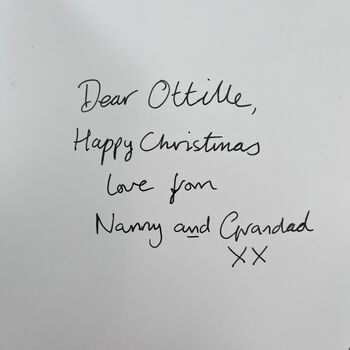 Dear Ottilie,
Happy Christmas
love from
Nanny and Grandad
XX